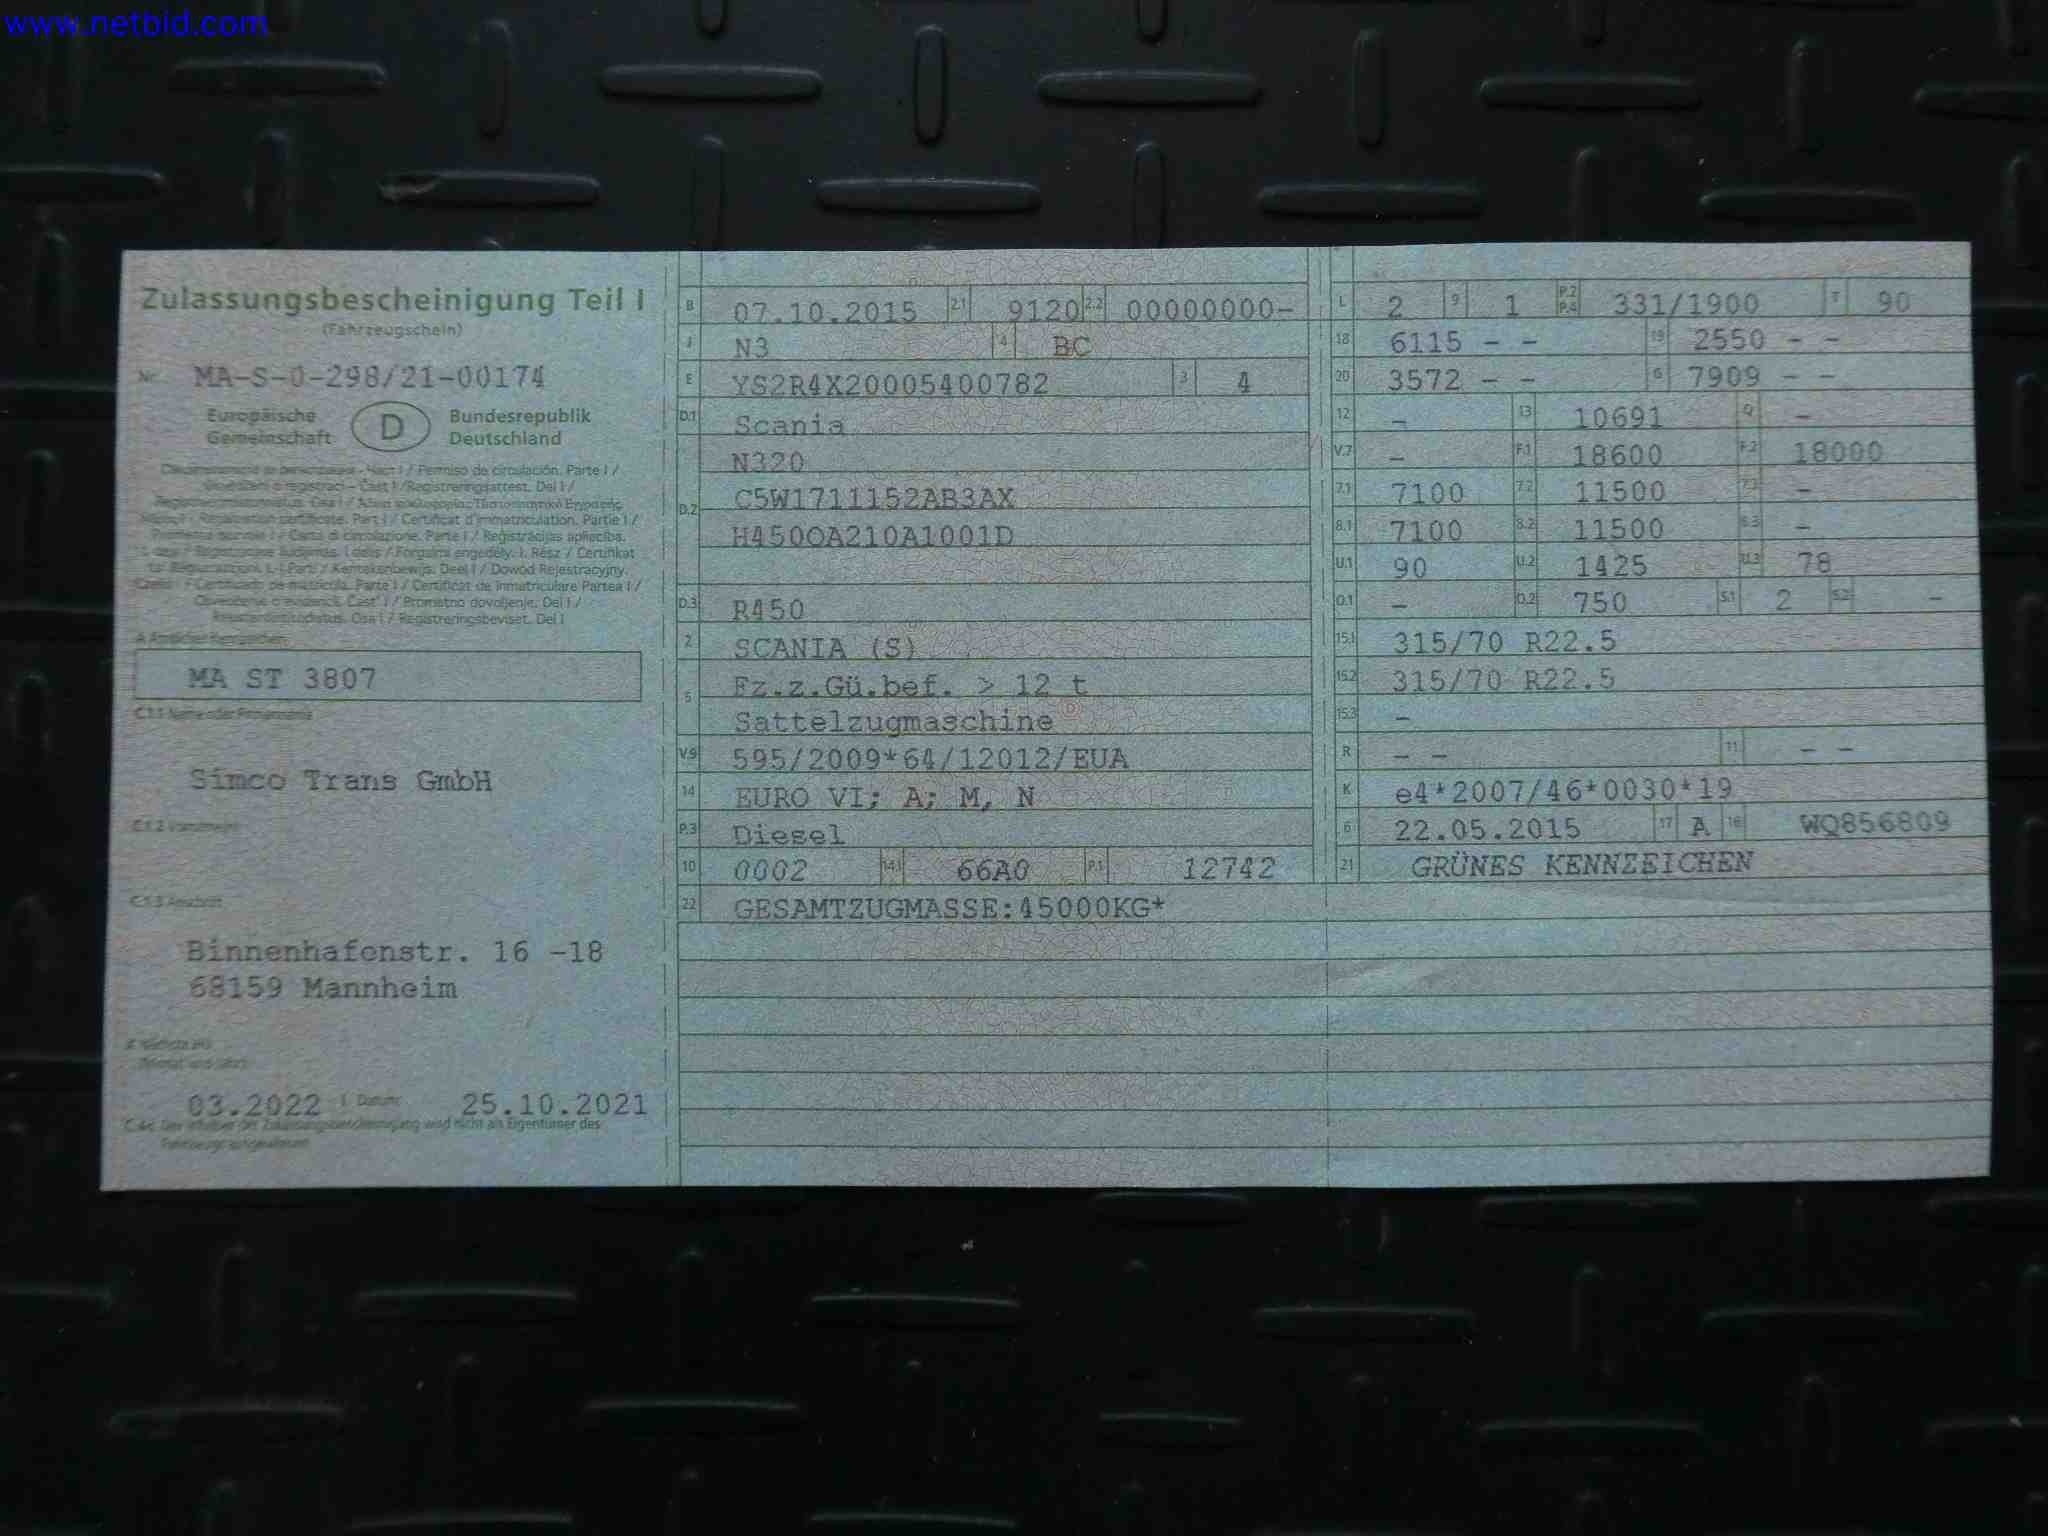 www.netbid.com
Zulassungsbescheinigung Teil I
(Fahrzeugschein)
Nr. MA-S-0-298/21-00174
Europäische Gemeinschaft
D
Bundesrepublik Deutschland
Permiso de circulación. Parte I /
Registreringsattest. Del I /
Part I / Certificat d'immatriculation. Partie I /
Carta di circolazione. Parte I / Reģistrācijas apliecība.
I. dalis / Forgalmi engedély. I. Rész / Ċertifikat
Kentekenbewijs. Deel I / Dowód Rejestracyjny.
Parte I / Certificat de înmatriculare Partea I /
Prometno dovoljenje. Del I /
Osa I / Registreringsbeviset. Del I
MA ST 3807
C.1.1
Simco Trans GmbH
C.1.2 Vorname(n)
C.1.3 Anschrift
Binnenhafenstr. 16 -18
68159 Mannheim
03.2022 I Datum: 25.10.2021
C.4c Der Inhaber der Zulassungsbescheinigung wird nicht als Eigentümer des
Fahrzeugs ausgewiesen.
B 07.10.2015 2.1 9120 2.2 00000000-
J N3 4 BC
E YS2R4X20005400782 3 4
D.1 Scania
D.2 N320
C5W1711152AB3AX
H450OA210A1001D
D.3 R450
2 SCANIA (S)
5 Fz.z.Gü.bef. > 12 t
Sattelzugmaschine
V.9 595/2009*64/12012/EUA
14 EURO VI; A; M, N
P.3 Diesel
10 0002 14.1 66A0 P.1 12742
22 GESAMTZUGMASSE:45000KG*
L 2 9 1 P.2 P.4 331/1900 T 90
18 6115 - - 19 2550 - -
20 3572 - - G 7909 - -
12 - 13 10691 Q -
V.7 - F.1 18600 F.2 18000
7.1 7100 7.2 11500 7.3 -
8.1 7100 8.2 11500 8.3 -
U.1 90 U.2 1425 U.3 78
O.1 - O.2 750 S.1 2 S.2 -
15.1 315/70 R22.5
15.2 315/70 R22.5
15.3 -
R - - 11 - -
K e4*2007/46*0030*19
6 22.05.2015 17 A 16 WQ856809
21 GRÜNES KENNZEICHEN